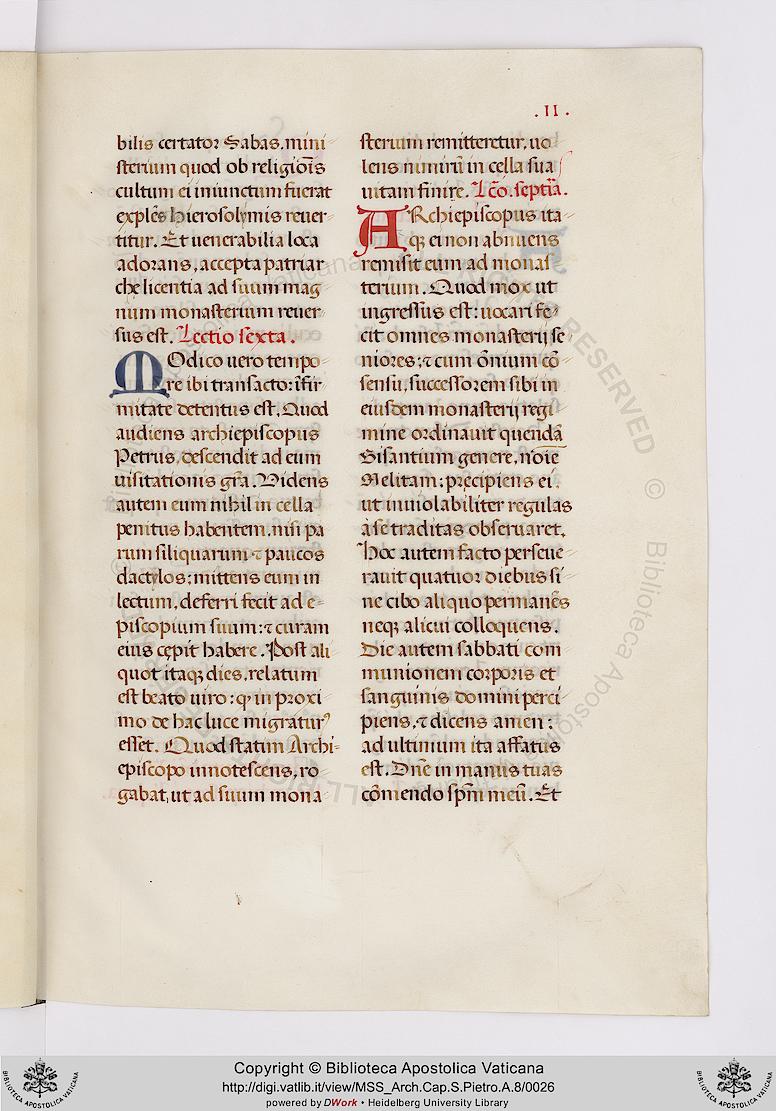 .II.
bilis certator Sabas. mini
sterium quod ob religiõis
cultum ei iniunctum fuerat
explẽs hierosolymis reuer
titur. Et uenerabilia loca
adorans, accepta patriar
che licentia ad suum mag
num monasterium reuer
sus est. Lectio sexta.
MOdico uero tempo
re ibi transacto: ĩfir
mitate detentus est. Quod
audiens archiepiscopus
Petrus, descendit ad eum
uisitationis gr̃a. Videns
autem eum nihil in cella
penitus habentem, nisi pa
rum siliquarum ⁊ paucos
dactylos: mittens eum in
lectum, deferri fecit ad e
piscopium suum: ⁊ curam
eius cępit habere. Post ali
quot itaqꝫ dies, relatum
est beato uiro: ꝙ in proxi
mo de hac luce migraturꝰ
esset. Quod statim Archi
episcopo innotescens, ro
gabat, ut ad suum mona
sterium remitteretur, uo
lens nimirũ in cella sua
uitam finire. Lc̃o. septĩa.
ARchiepiscopus ita
qꝫ ei non abnuens
remisit eum ad monas
terium. Quod mox ut
ingressus est: uocari fe
cit omnes monasterij se
niores: ⁊ cum õnium cõ
sensu, successorem sibi in
eiusdem monasterij regi
mine ordinauit quendã
Bisantium genere, noĩe
Melitam: pręcipiens ei.
ut inuiolabiliter regulas
a se traditas obseruaret.
Hoc autem facto perseue
rauit quatuor diebus si
ne cibo aliquo permanẽs
neqꝫ alicui colloquens.
Die autem sabbati com
munionem corporis et
sanguinis domini perci
piens, ⁊ dicens amen:
ad ultimum ita affatus
est. Dñe in manus tuas
cõmendo spm̃ meũ. Et
Copyright © Biblioteca Apostolica Vaticana
http://digi.vatlib.it/view/MSS_Arch.Cap.S.Pietro.A.8/0026
powered by DWork • Heidelberg University Library